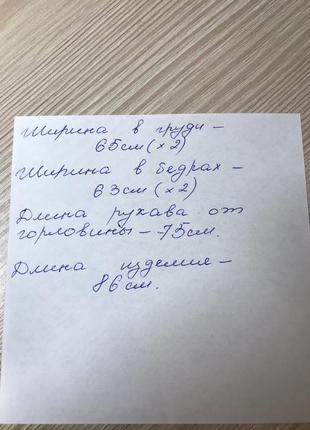 Ширина в груди –
65см (х2)
Ширина в бедрах –
63см (х2)
Длина рукава от
горловины – 75см.
Длина изделие –
86см.